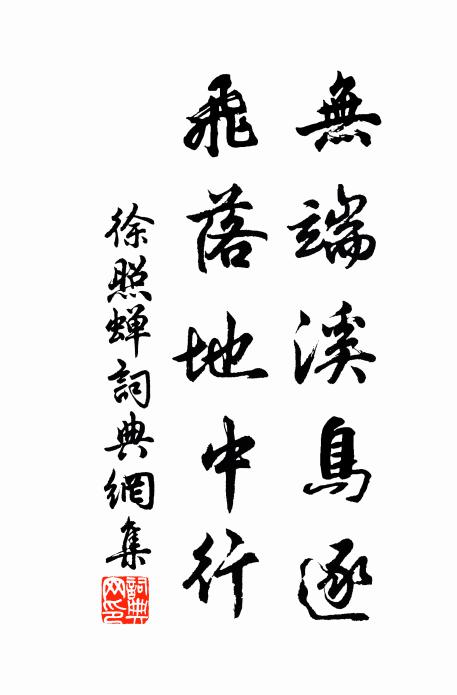 無端溪鳥逐
飛落地中行
徐照蝉詞典網集
詞典網印